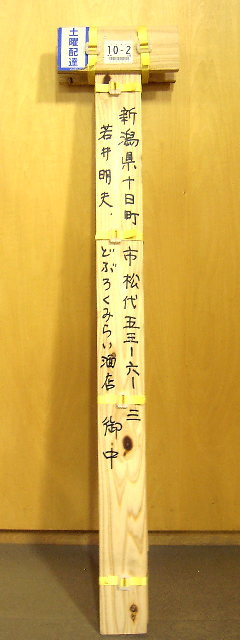 土曜配達
10-2
新潟県十日町市松代五三一六ー三
若井明夫
どぶろくみらい酒店 御中